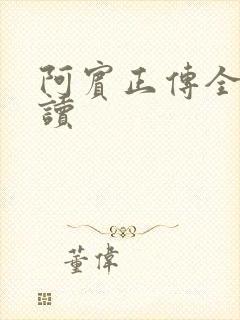 阿賓正傳全
讀
董偉